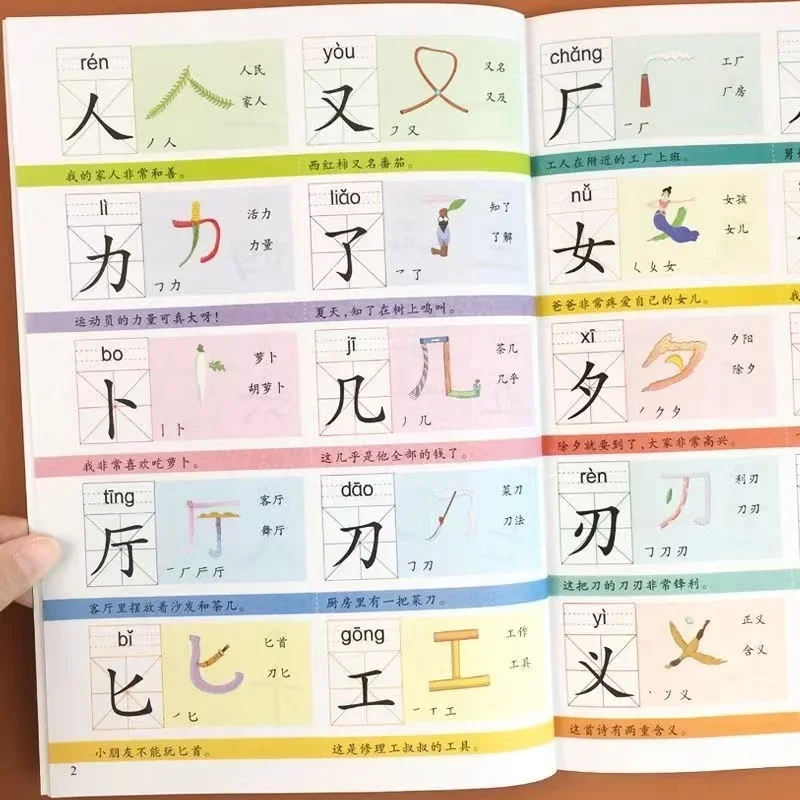 rén
人
人民
家人
丿 人
我的家人非常和善。
yòu
又
又名
又及
㇇ 又
西红柿又名番茄。
lì
力
活力
力量
㇆ 力
运动员的力量可真大呀!
liǎo
了
知了
了解
乛 了
夏天,知了在树上鸣叫。
bo
卜
萝卜
胡萝卜
丨 卜
我非常喜欢吃萝卜。
jī
几
茶几
几乎
丿 几
这几乎是他全部的钱了。
tīng
厅
客厅
舞厅
一 厂 厅 厅
客厅里摆放着沙发和茶几。
dāo
刀
菜刀
刀法
㇆ 刀
厨房里有一把菜刀。
bǐ
匕
匕首
刀匕
㇀ 匕
小朋友不能玩匕首。
gōng
工
工作
工具
一 丅 工
这是修理工叔叔的工具。
2
chǎng
厂
工厂
厂房
一 厂
工人在附近的工厂上班。
nǚ
女
女孩
女儿
𡿨 女 女
爸爸非常疼爱自己的女儿。
xī
夕
夕阳
除夕
丿 ク 夕
除夕就要到了,大家非常高兴。
rèn
刃
利刃
刀刃
㇆ 刀 刃
这把刀的刀刃非常锋利。
yì
义
正义
含义
丶 丿 义
这首诗有两重含义。